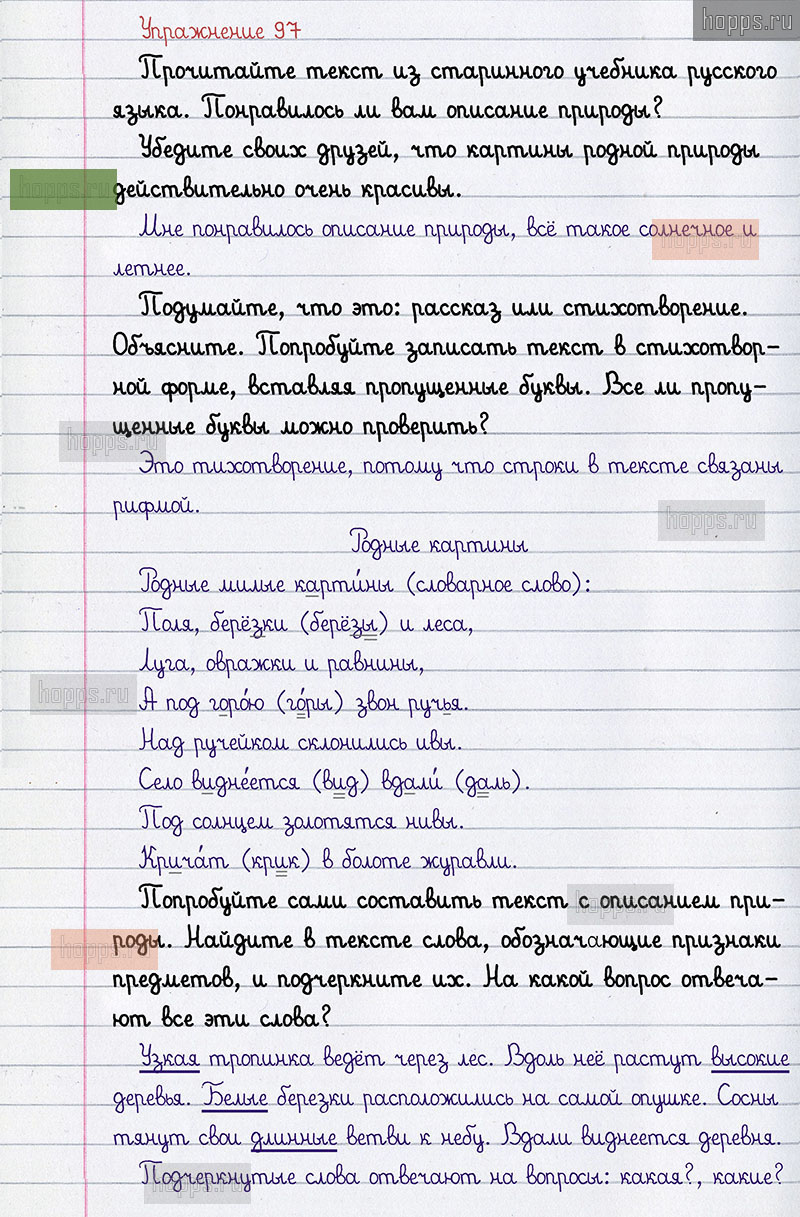 hopps.ru
Упражнение 97
Прочитайте текст из старинного учебника русского
языка. Понравилось ли вам описание природы?
Убедите своих друзей, что картины родной природы
hopps.ru
действительно очень красивы.
Мне понравилось описание природы, всё такое солнечное и
hopps.ru
летнее.
Подумайте, что это: рассказ или стихотворение.
Объясните. Попробуйте записать текст в стихотвор-
ной форме, вставляя пропущенные буквы. Все ли пропу-
щенные буквы можно проверить?
hopps.ru
Это тихотворение, потому что строки в тексте связаны
рифмой.
hopps.ru
Родные картины
Родные милые карти́ны (словарное слово):
Поля, берёзки (берёзы) и леса,
Луга, овражки и равнины,
hopps.ru
А под горо́ю (го́ры) звон ручья.
Над ручейком склонились ивы.
Село видне́ется (вид) вдали́ (даль).
Под солнцем золотятся нивы.
Крича́т (крик) в болоте журавли.
Попробуйте сами составить текст с описанием при-
hopps.ru
роды. Найдите в тексте слова, обозначающие признаки
hopps.ru
предметов, и подчеркните их. На какой вопрос отвеча-
ют все эти слова?
Узкая тропинка ведёт через лес. Вдоль неё растут высокие
деревья. Белые березки расположились на самой опушке. Сосны
тянут свои длинные ветви к небу. Вдали виднеется деревня.
Подчеркнутые слова отвечают на вопросы: какая?, какие?
hopps.ru